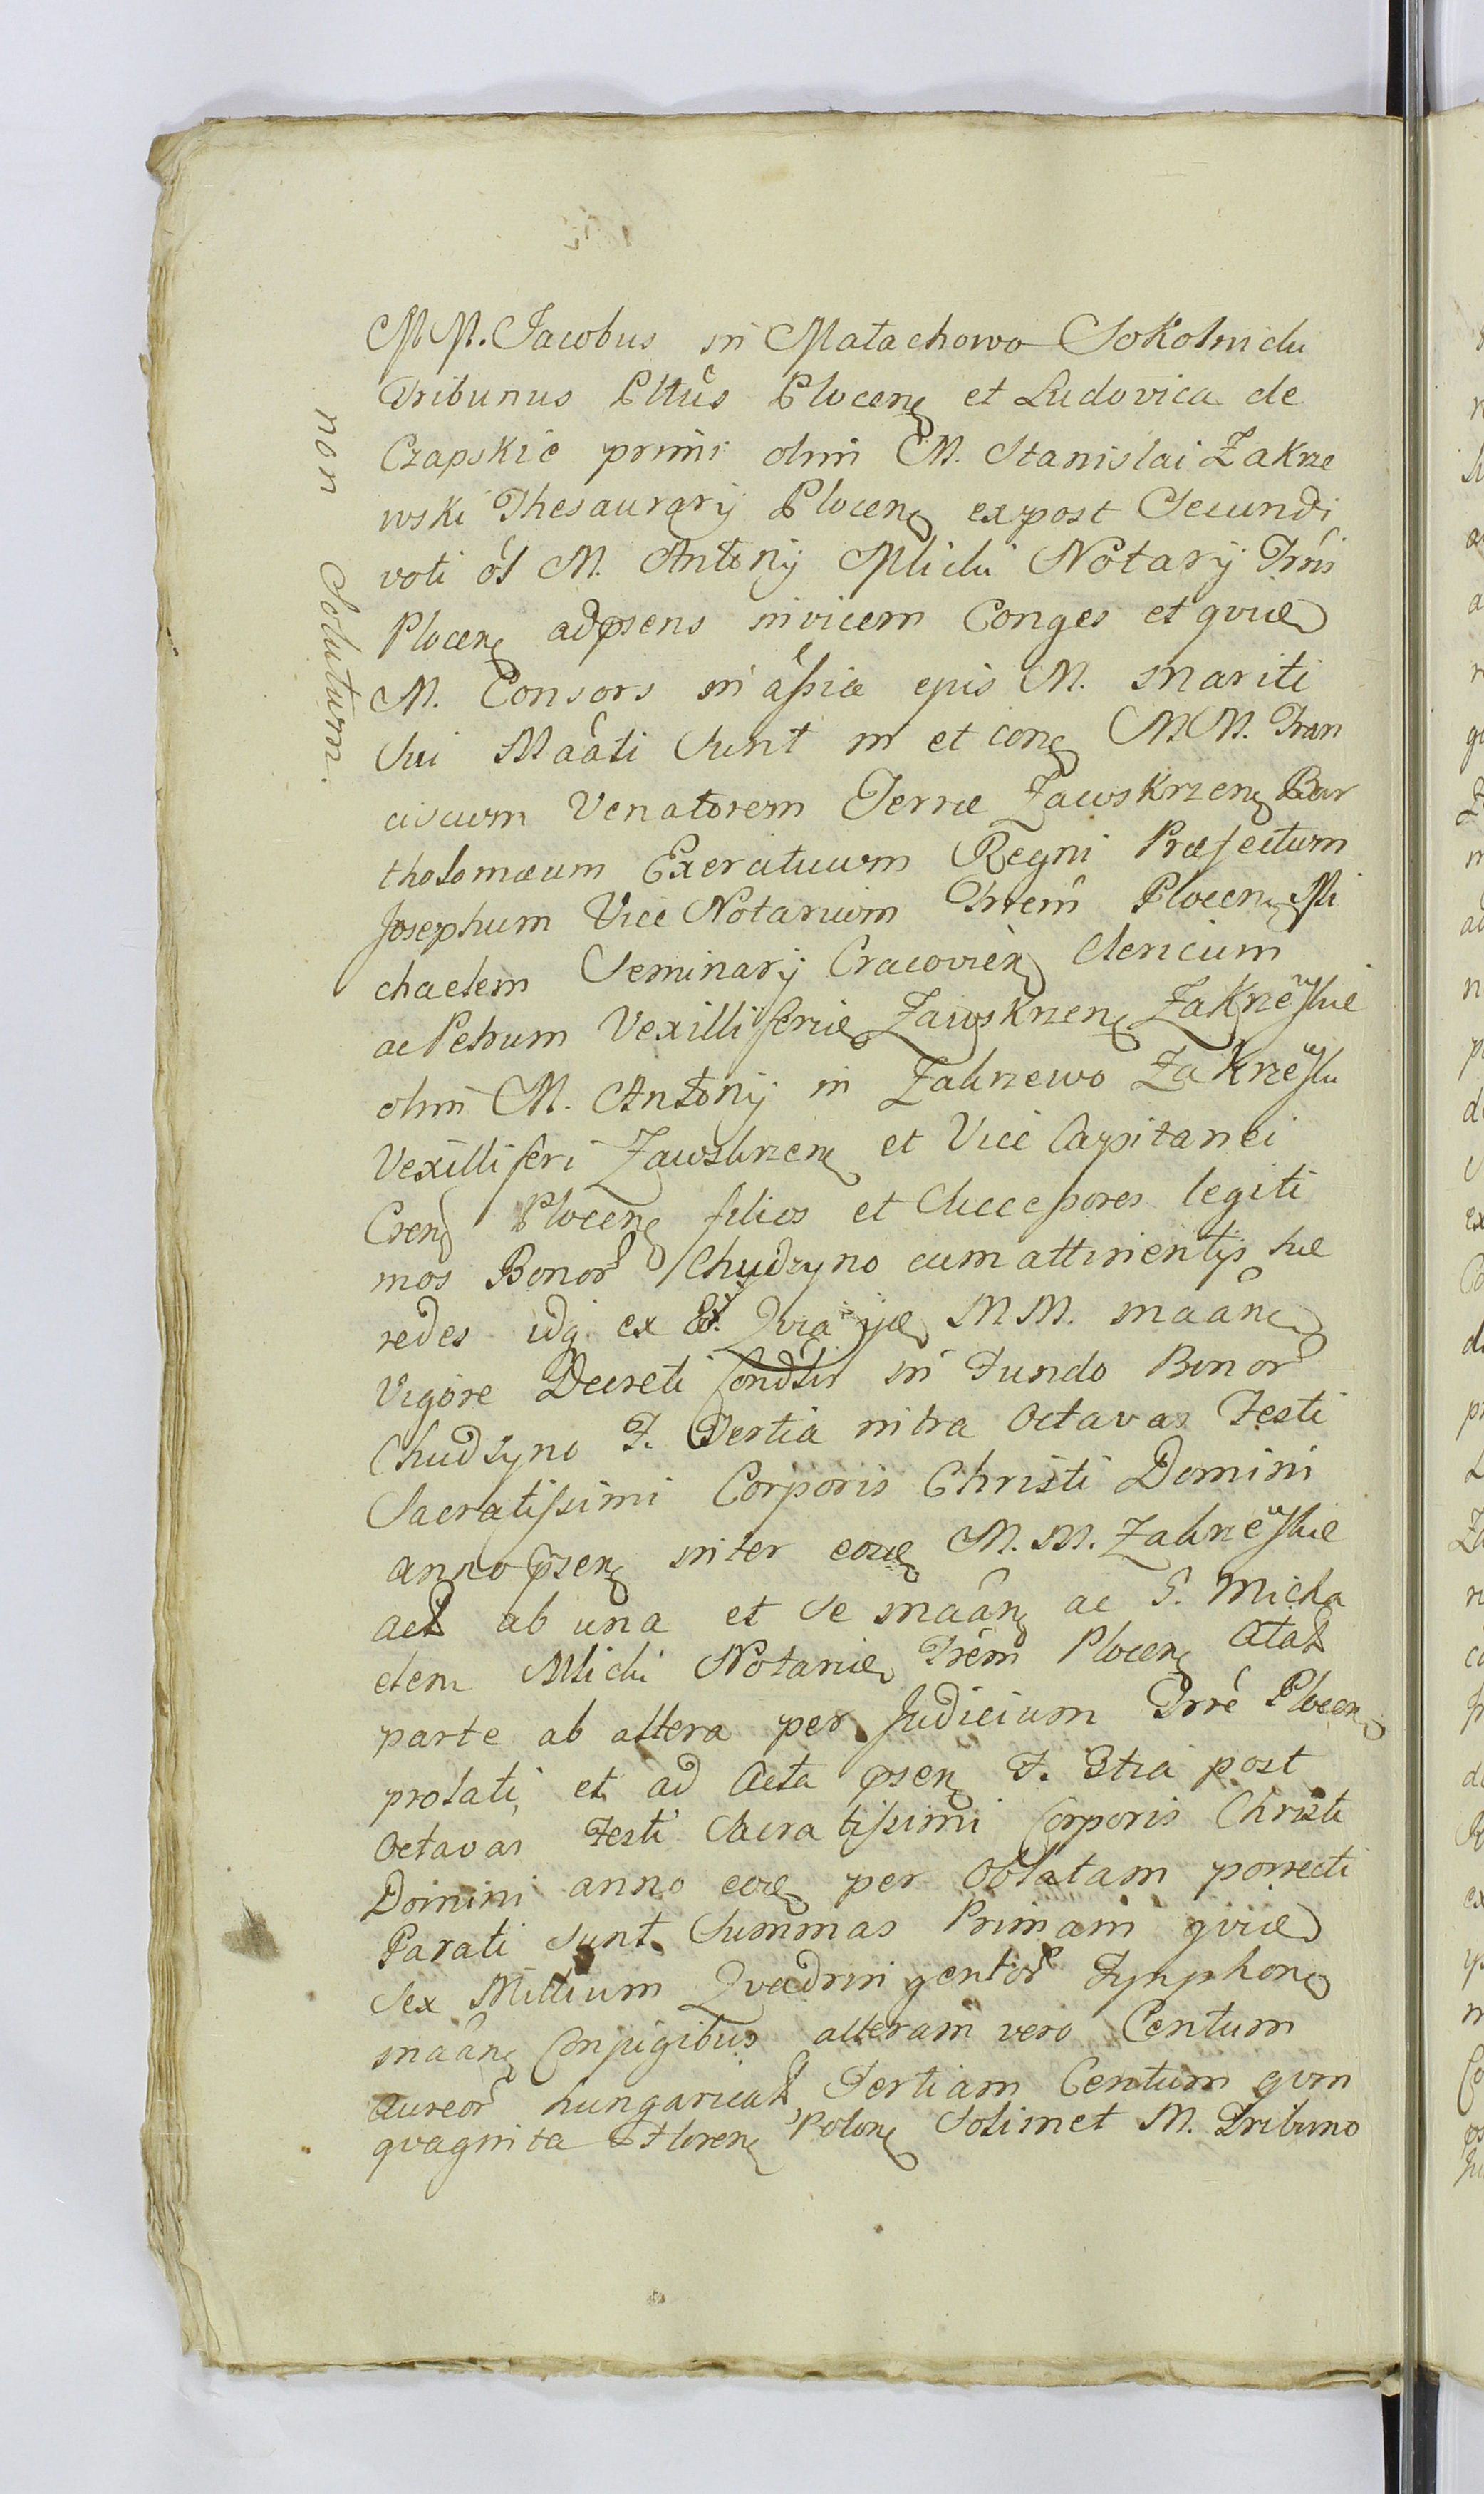 MM. Jacobus in Małachowo Sokolnicki
Tribunus Pltûs Plocen et Ludovica de
Czapskie primi olim M. Stanislai Zakrze
wski Thesaurarij Plocen expost Secundi
voti ol M. Antonij Mlicki Notarij Trris
Plocen ad psens invicem Conges et qvid
M. Consors in assia ejus M. mariti
sui Maâti sunt in et con MM. Fran
ciscum Venatorem Terræ Zawskrzen Bar
tholomæum Exercituum Regni Præfectum
Josephum Vice Notarium Trrem Plocen Mi
chaelem Seminarij Cracovien Clericum
ac Petrum Vexilliferid Zawskrzen Zakrzewskie
olim M. Antonij in Zakrzewo Zakrzewski
Vexilliferi Zawskrzen et Vice Capitanei
Cren Plocen filios et Successores legiti
mos Bonor Chudzyno cum attinentijs hæ
redes idq ex eo. Qvia ijd MM. maân
Vigore Decreti Condtis in Fundo Bonor
Chudzyno F. Tertia intra Octavas Festi
Sacratissimi Corporis Christi Domini
anno psen inter eosd M.M. Zakrzewskie
act ab una et se maân ac G. Micha
elem Mlicki Notarid Trrem Plocen Citat
parte ab altera per Judicium Trre Plocen
prolati, et ad Acta psen F. 3tia post
Octavas Festi Sacratissimi Corporis Christi
Domini anno eod per Oblatam porrecti
Parati sunt Summas Primam qvid
Sex Millium Qvadringentor Tynphon
maân Conjugibus alteram vero Centum
Aureor hungarical, Tertiam Centum qvin
qvaginta Floren Polon Solimet M. Tribuno
non Solutum.